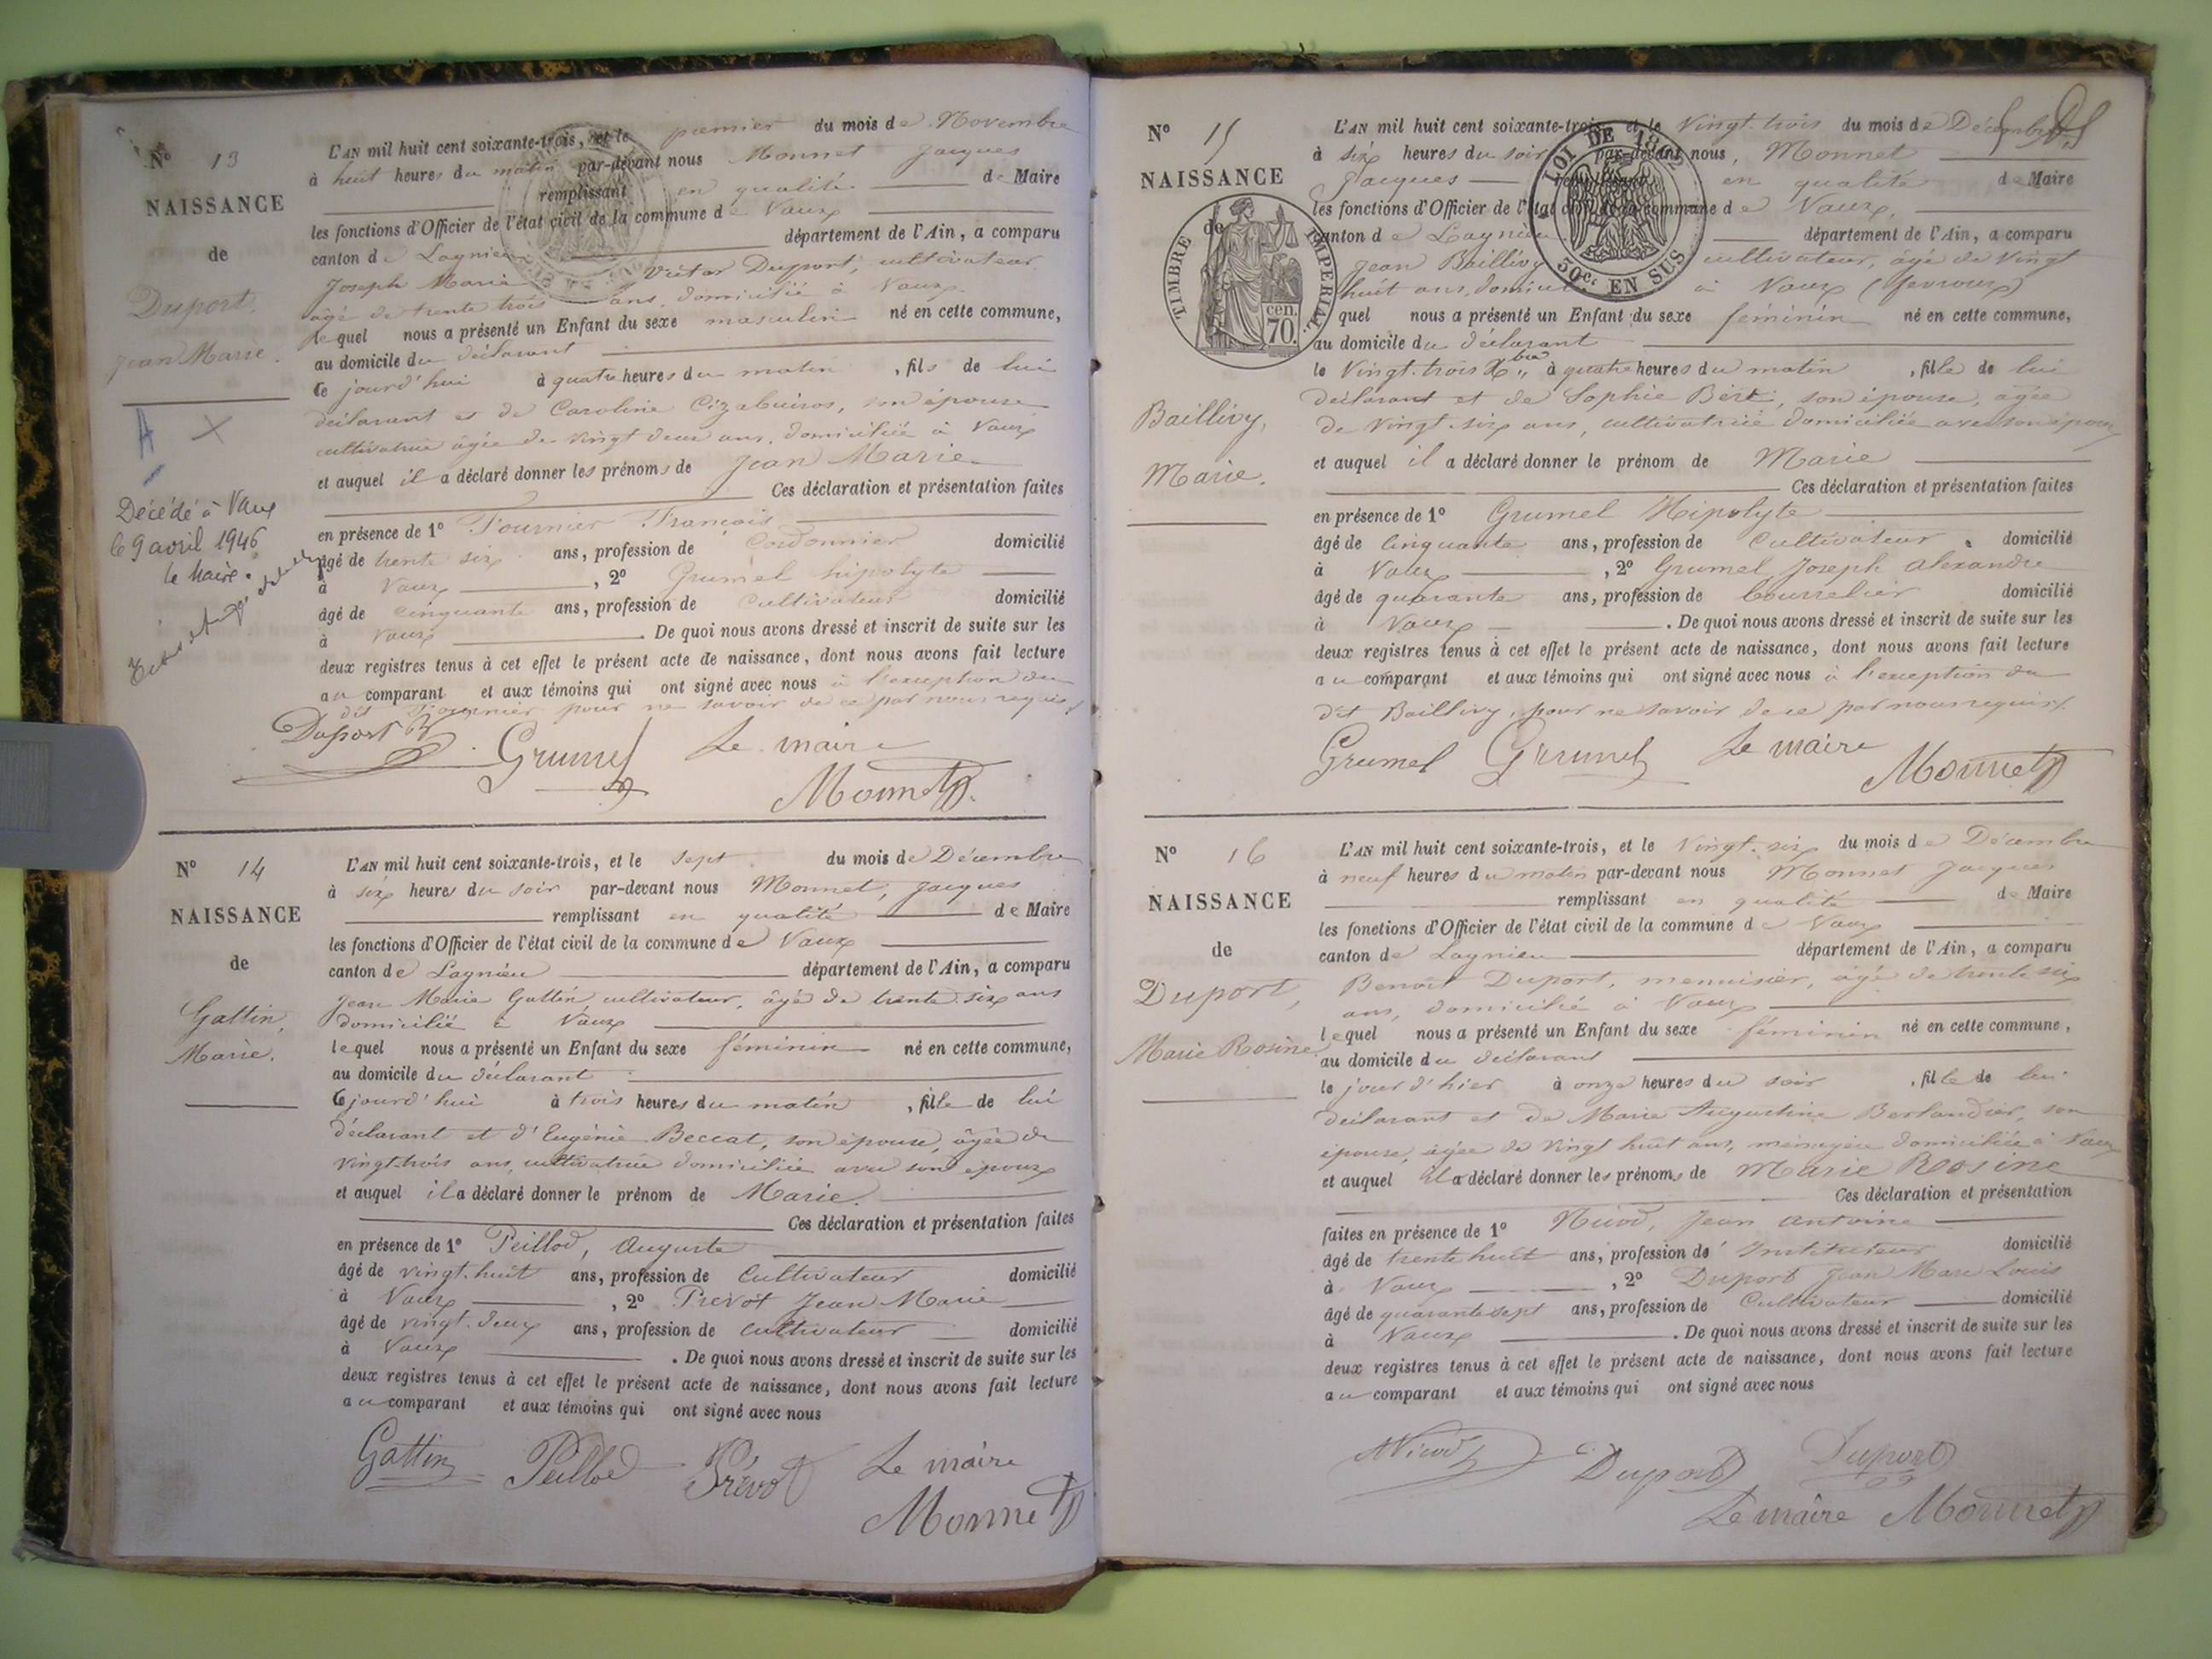 N° 13
NAISSANCE
de
Duport,
Jean Marie.
A X
Décédé à Vaux
le 9 avril 1946
le Maire.
L'AN mil huit cent soixante-trois, et le premier du mois de Novembre
à huit heures du matin par-devant nous Monnet Jacques
remplissant en qualité de Maire
les fonctions d'Officier de l'état civil de la commune de Vaux
canton de Lagnieu département de l'Ain, a comparu
Joseph Marie Victor Duport, cultivateur
âgé de trente trois ans, domicilié à Vaux.
lequel nous a présenté un Enfant du sexe masculin né en cette commune,
au domicile du déclarant
ce jourd'hui à quatre heures du matin, fils de lui
déclarant et de Caroline, son épouse
cultivatrice âgée de vingt deux ans, domiciliée à Vaux
et auquel il a déclaré donner les prénoms de Jean Marie
Ces déclaration et présentation faites
en présence de 1° Fournier François
âgé de trente six ans, profession de Cordonnier domicilié
à Vaux, 2° Grumel hipolyte
âgé de cinquante ans, profession de Cultivateur domicilié
à Vaux. De quoi nous avons dressé et inscrit de suite sur les
deux registres tenus à cet effet le présent acte de naissance, dont nous avons fait lecture
au comparant et aux témoins qui ont signé avec nous à l'exception du
dit Fournier pour ne savoir de ce par nous requis
Duport Grumel Le maire
Monnet
N° 14
NAISSANCE
de
Gattin,
Marie.
L'AN mil huit cent soixante-trois, et le sept du mois de Décembre
à six heures du soir par-devant nous Monnet, Jacques
remplissant en qualité de Maire
les fonctions d'Officier de l'état civil de la commune de Vaux
canton de Lagnieu département de l'Ain, a comparu
Jean Marie Gattin, cultivateur, âgé de trente six ans
domicilié à Vaux
lequel nous a présenté un Enfant du sexe féminin né en cette commune,
au domicile du déclarant
Ce jourd'hui à trois heures du matin, fille de lui
déclarant et d'Eugénie Beccat, son épouse, âgée de
vingt-trois ans, cultivatrice domiciliée avec son époux
et auquel il a déclaré donner le prénom de Marie
Ces déclaration et présentation faites
en présence de 1° Peillod, Auguste
âgé de vingt-huit ans, profession de Cultivateur domicilié
à Vaux, 2° Prévôt Jean Marie
âgé de vingt-deux ans, profession de Cultivateur domicilié
à Vaux. De quoi nous avons dressé et inscrit de suite sur les
deux registres tenus à cet effet le présent acte de naissance, dont nous avons fait lecture
au comparant et aux témoins qui ont signé avec nous
Gattin Peillod Prévot Le maire
Monnet
N° 15
NAISSANCE
de
TIMBRE IMPERIAL
cen. 70.
LOI DE 1862
50c. EN SUS
Baillivy,
Marie.
L'AN mil huit cent soixante-trois, et le Vingt-trois du mois de Décembre
à six heures du soir par-devant nous, Monnet
Jacques remplissant en qualité de Maire
les fonctions d'Officier de l'état civil de la commune de Vaux,
canton de Lagnieu département de l'Ain, a comparu
Jean Baillivy cultivateur, âgé de vingt
huit ans, domicilié à Vaux (fevroux)
quel nous a présenté un Enfant du sexe féminin né en cette commune,
au domicile du déclarant
le Vingt-trois Xbre à quatre heures du matin, fille de lui
déclarant et de Sophie Bert, son épouse, âgée
de vingt-six ans, cultivatrice domiciliée avec son époux
et auquel il a déclaré donner le prénom de Marie
Ces déclaration et présentation faites
en présence de 1° Grumel Hipolyte
âgé de cinquante ans, profession de Cultivateur domicilié
à Vaux, 2° Grumel, Joseph alexandre
âgé de quarante ans, profession de bourrelier domicilié
à Vaux. De quoi nous avons dressé et inscrit de suite sur les
deux registres tenus à cet effet le présent acte de naissance, dont nous avons fait lecture
au comparant et aux témoins qui ont signé avec nous à l'exception du
dit Baillivy, pour ne savoir de ce par nous requis.
Grumel Grumel Le maire
Monnet
N° 16
NAISSANCE
de
Duport,
Marie Rosine.
L'AN mil huit cent soixante-trois, et le vingt-six du mois de Décembre
à neuf heures du matin par-devant nous Monnet Jacques
remplissant en qualité de Maire
les fonctions d'Officier de l'état civil de la commune de Vaux
canton de Lagnieu département de l'Ain, a comparu
Benoit Duport, menuisier, âgé de trente six
ans, domicilié à Vaux
lequel nous a présenté un Enfant du sexe féminin né en cette commune,
au domicile du déclarant
le jour d'hier à onze heures du soir, fille de lui
déclarant et de Marie Augustine Berlandier, son
épouse, âgée de vingt huit ans, ménagère domiciliée à Vaux
et auquel il a déclaré donner les prénoms de Marie Rosine
Ces déclaration et présentation
faites en présence de 1° Nicod, Jean antoine
âgé de trente huit ans, profession de Instituteur domicilié
à Vaux, 2° Duport Jean Marie Louis
âgé de quarante sept ans, profession de Cultivateur domicilié
à Vaux. De quoi nous avons dressé et inscrit de suite sur les
deux registres tenus à cet effet le présent acte de naissance, dont nous avons fait lecture
au comparant et aux témoins qui ont signé avec nous
Nicod Duport Duport
Le maire Monnet